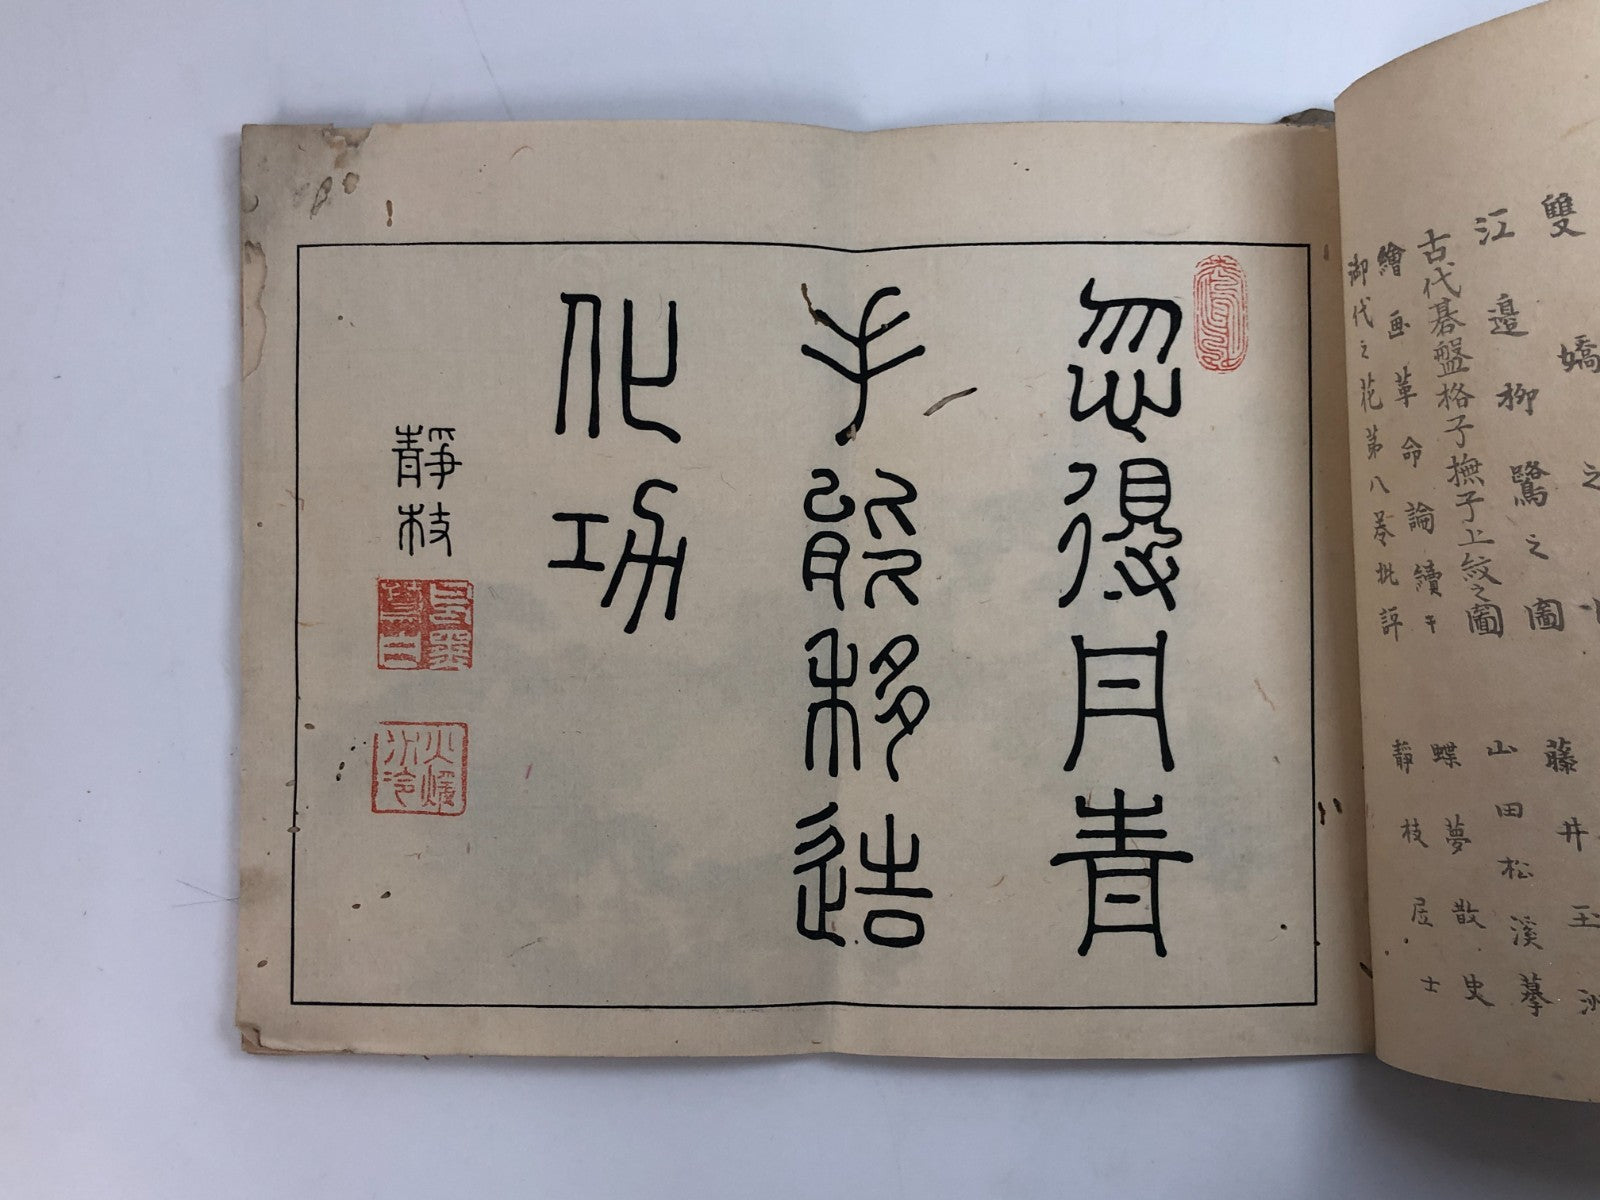 雙嬌之
藤井玉
江邊柳鷺之圖
山田松溪摹
古代碁盤格子撫子上紋之圖
繪画革命論續キ
蝶夢散史
御代之花第八巻批評
靜枝居士
忽得丹青
手能移造
化功
靜枝
火煖水冷